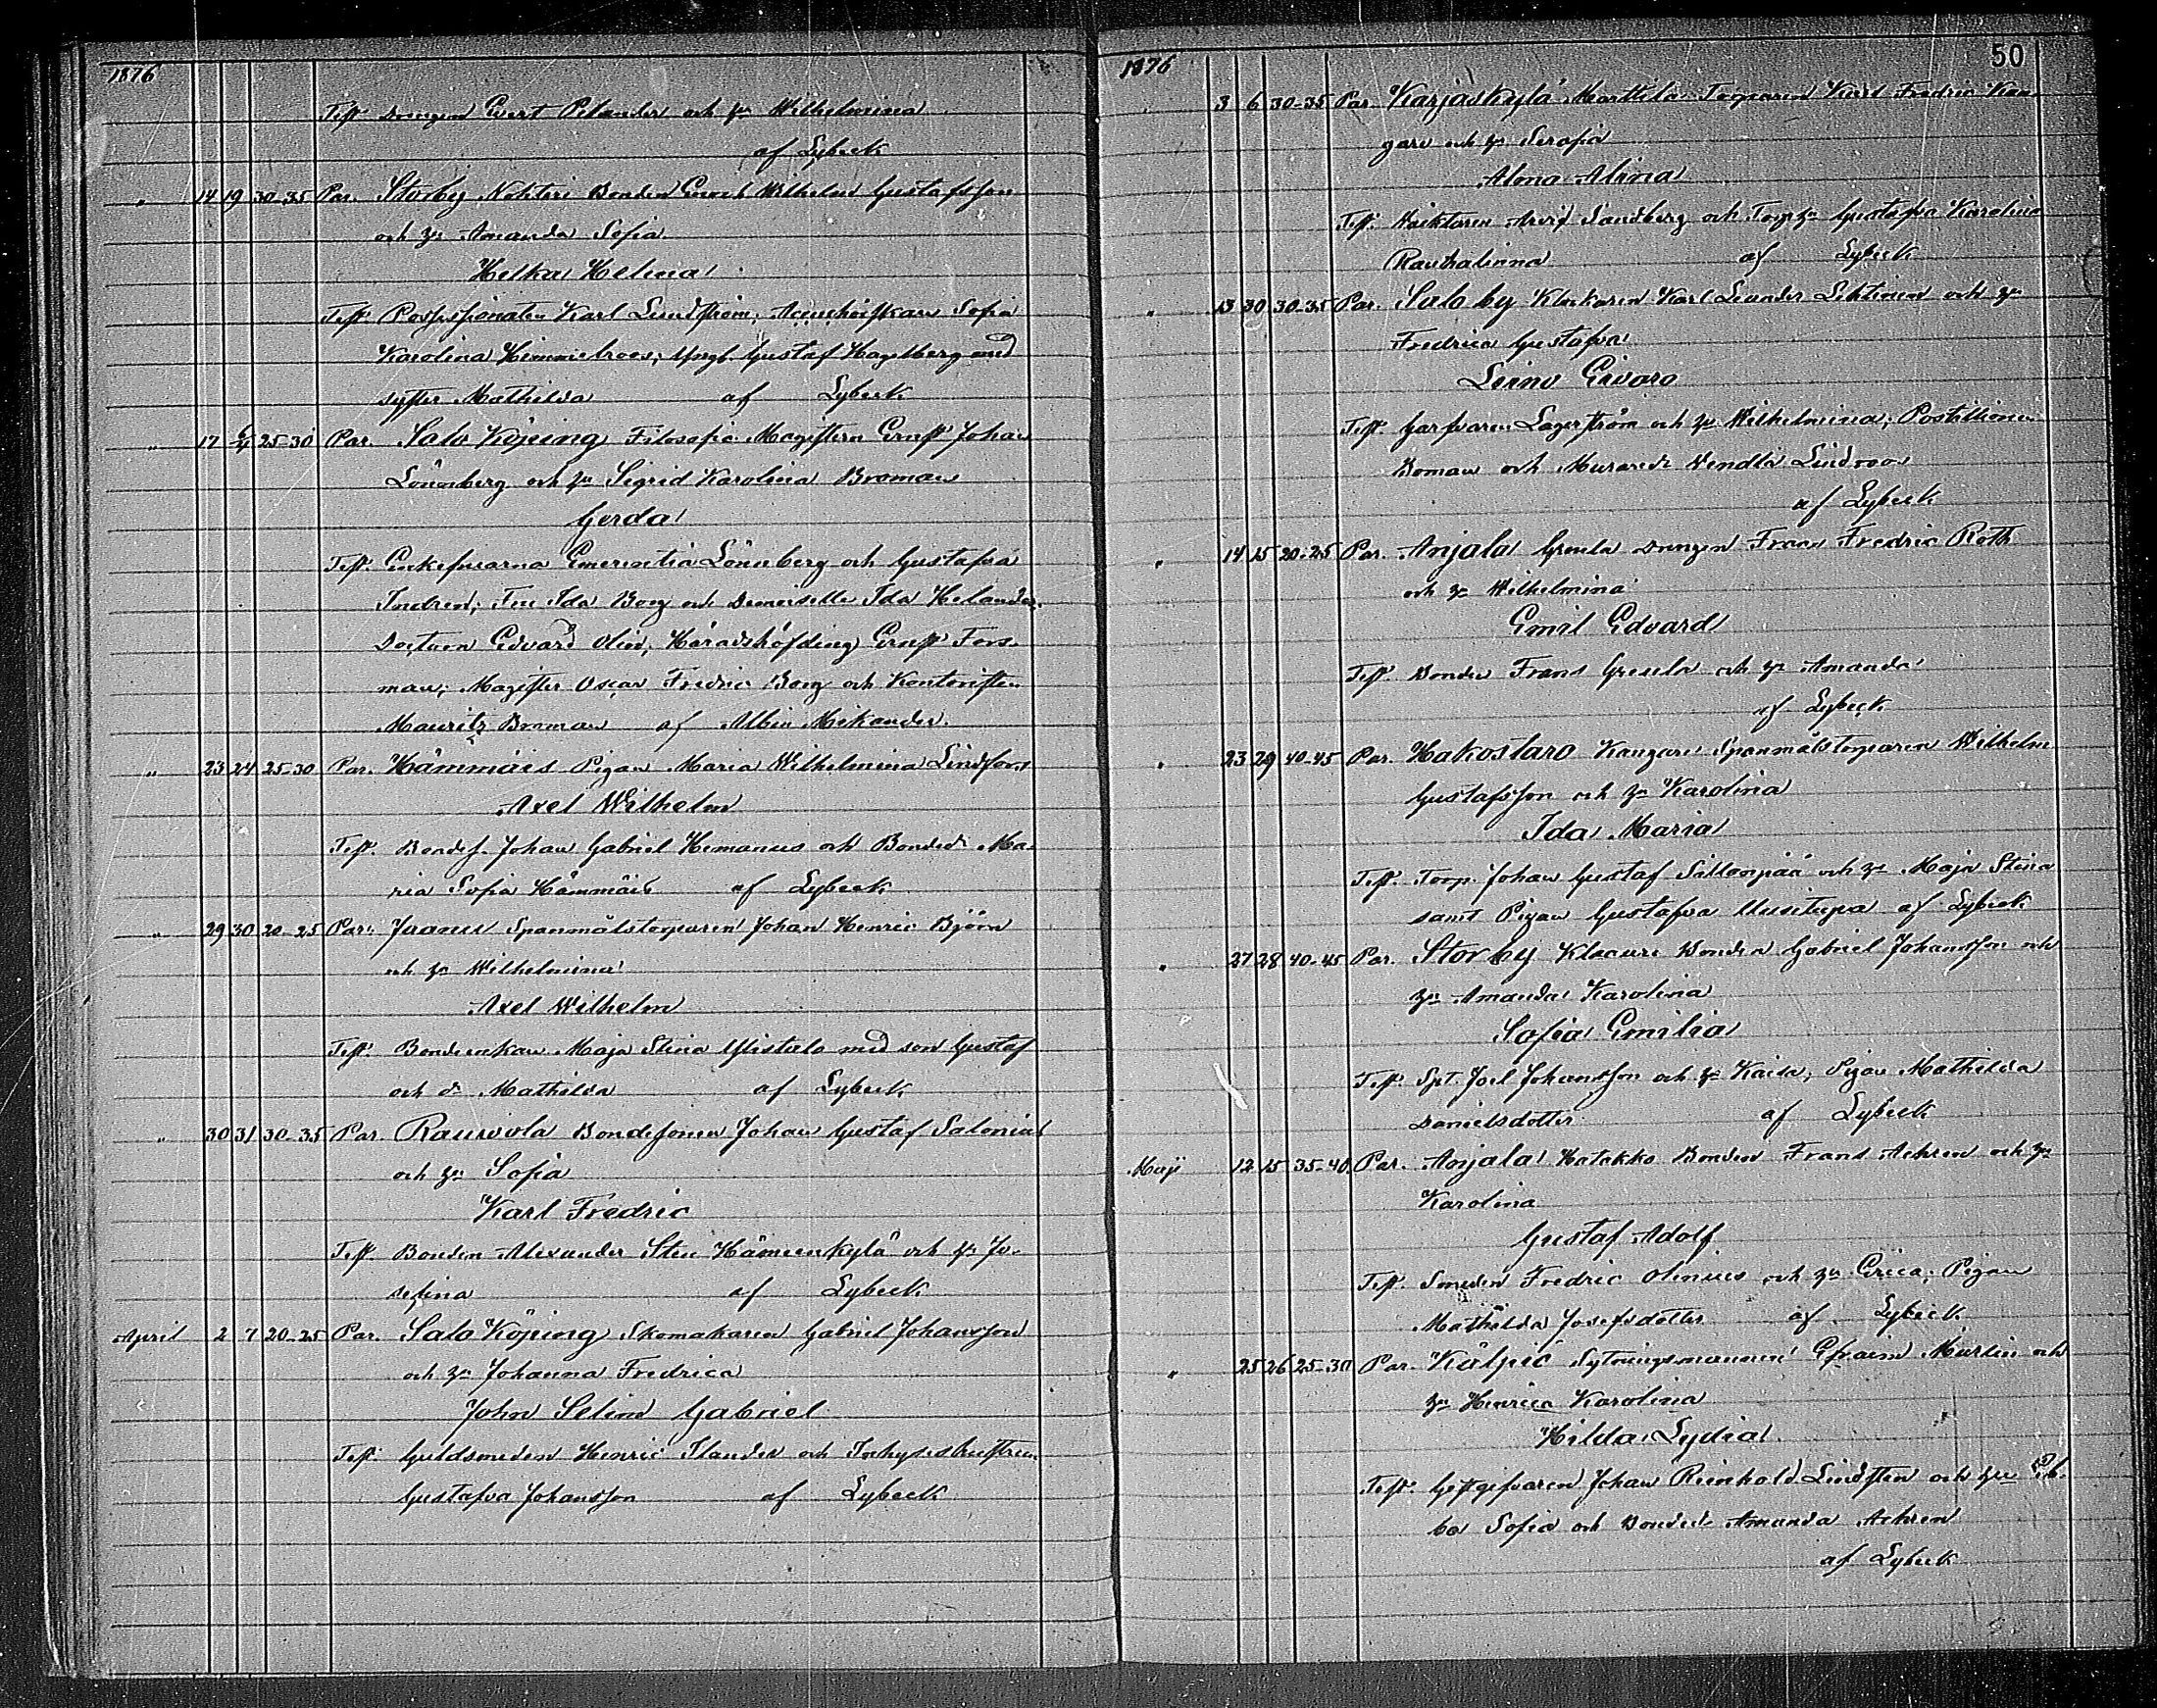 1876
Test. Drengen Evert Pelander och h:u Wilhelmina
af Lybeck
" 14 19 30-35 Par. Storby Nohteri Bonden Enoch Wilhelm Gustafsson
och h:u Amanda Sofia
Helka Helena
Test. Possessionaten Karl Lindström, Sofia
Karolina Himmelroos; Yngl. Gustaf Hagelberg med
syster Mathilda af Lybeck
" 17 25-30 Par. Salo Köping Filosofie Magistern Ernst Johan
Lönnberg och h:u Sigrid Karolina Broman
Gerda
Test. Enkefruarna Emerentia Lönnberg och Gustafva
Indren; Fru Ida Borg och Demoiselle Ida Helander.
Doctorn Edvard Olin, Häradshöfding Ernst Fors-
man; Magister Oscar Fredric Borg och Kontoristen
Mauritz Broman af Albin Mikander.
" 23 24 25-30 Par. Hämmäis Pigan Maria Wilhelmina Lindfors
Axel Wilhelm
Test. Bondes. Johan Gabriel Hemanus och Bonded:r Ma-
ria Sofia Hämmäis af Lybeck
" 29 30 20-25 Par. Iranu Spanmålstorparen Johan Henric Björn
och h:u Wilhelmina
Axel Wilhelm
Test. Bondeenkan Maja Stina Ylistalo med son Gustaf
och d:r Mathilda af Lybeck
" 30 31 30-35 Par. Rauvola Bondesonen Johan Gustaf Salonius
och h:u Sofia
Karl Fredric
Test. Bonden Alexander Sten Hämeenkylä och h:u Jo-
sefina af Lybeck
April 2 7 20-25 Par. Salo Köping Skomakaren Gabriel Johansson
och h:u Johanna Fredrica
John Selim Gabriel
Test. Guldsmeden Henric Ilander och Inhyseshustrun
Gustafva Johansson af Lybeck
1876 50
" 3 6 30-35 Par. Karjaskylä Marttila Torparen Karl Fredric Kan-
gare och h:u Serafia
Alma Alina
Test. Arvid Sandberg och Torp.h:u Gustafva Karolina
Rautalinna af Lybeck
" 13 30 30-35 Par. Salo by Klockaren Karl Leander Lehtinen och h:u
Fredrica Gustafva
Leino Eivaro
Test. Garfvaren Lagerström och h:u Wilhelmina; Postillionen
Boman och Murared:r Vendla Lindroos
af Lybeck
" 14 15 20-25 Par. Anjala Greula Drengen Frans Fredric Roth
och h:u Wilhelmina
Emil Edvard
Test. Bonden Frans Greula och h:u Amanda
af Lybeck
" 23 29 40-45 Par. Hakostaro Kangare Spanmålstorparen Wilhelm
Gustafsson och h:u Karolina
Ida Maria
Test. Torp. Johan Gustaf Sillanpää och h:u Maja Stina
samt Pigan Gustafva Uusitupa af Lybeck
" 27 28 40-45 Par. Storby Klacure Bonden Gabriel Johansson och
h:u Amanda Karolina
Sofia Emilia
Test. Spt. Joel Johansson och h:u Kaisa; Pigan Mathilda
Danielsdotter af Lybeck
Maji 12 15 35-40 Par. Anjala Hatakko Bonden Frans Achren och h:u
Karolina
Gustaf Adolf
Test. Smeden Fredric Olenius och h:u Erica; Pigan
Mathilda Josefsdotter af Lybeck
" 25 26 25-30 Par. Kälpiö Sytningsmannen Efraim Murlin och
h:u Henrica Karolina
Hilda Lydia
Test. Gästgifvaren Johan Reinhold Lindsten och h:u Eb-
ba Sofia och Bonded:r Amanda Achren
af Lybeck